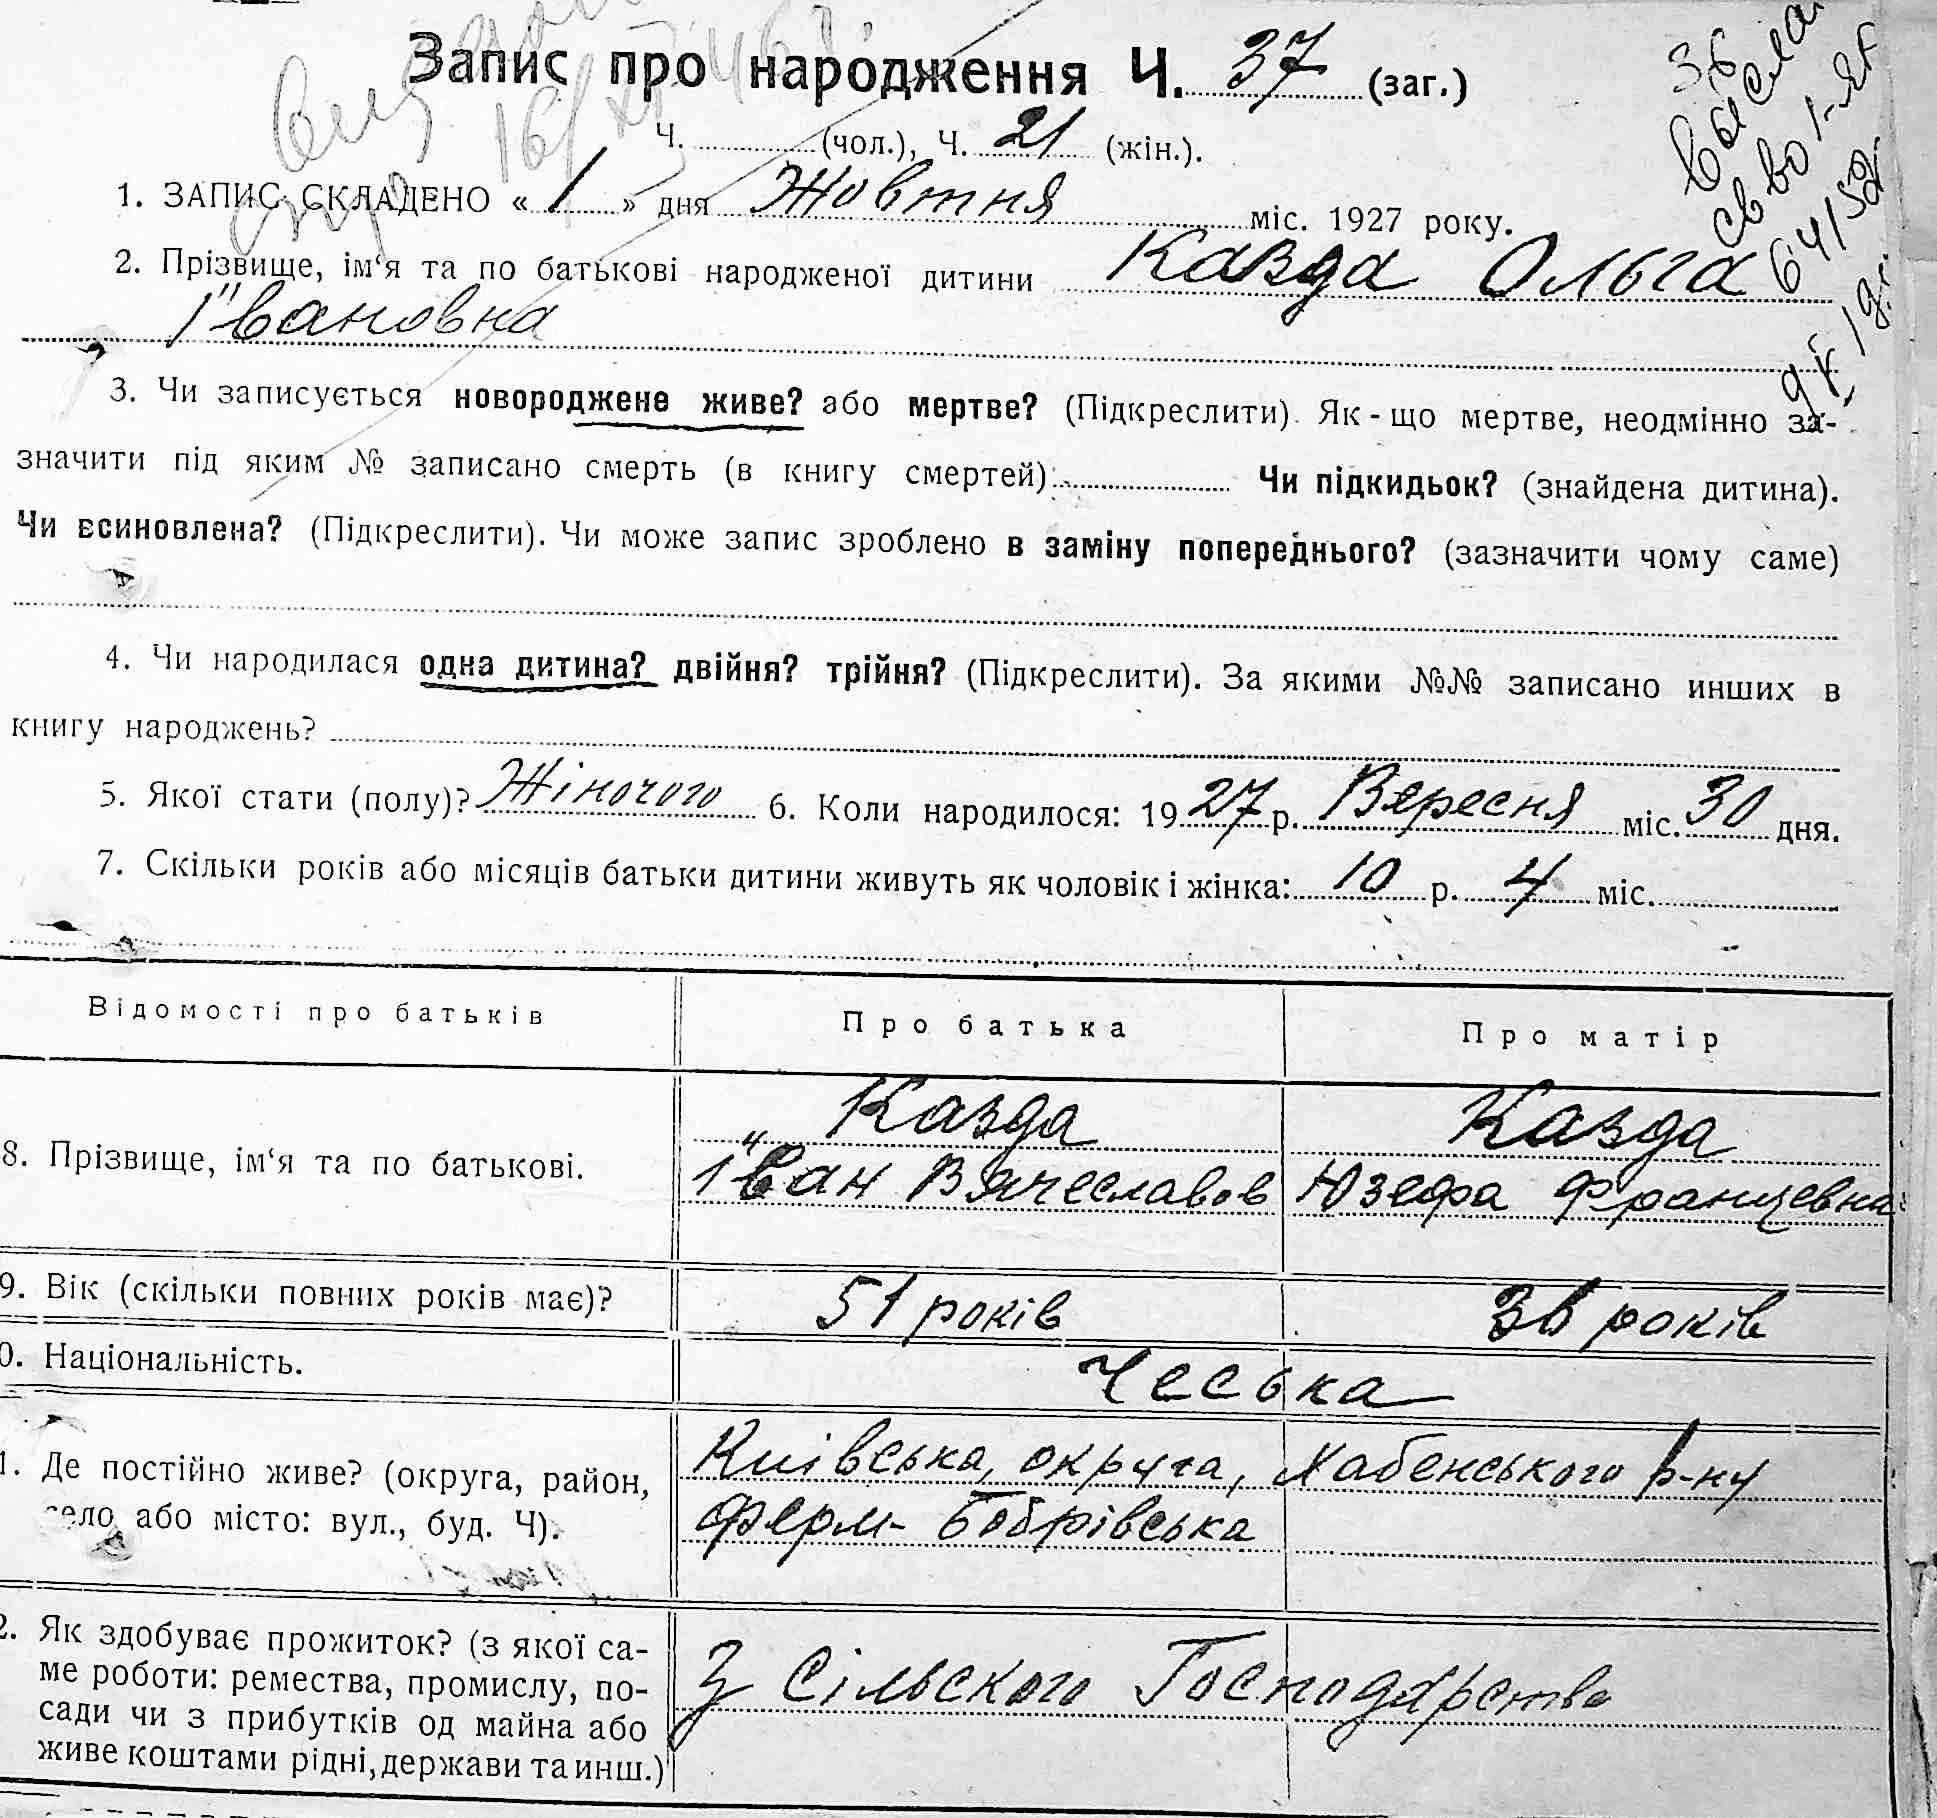 Запис про народження Ч. 37 (заг.)
Ч. (чол.), Ч. 21 (жін.).
1. ЗАПИС СКЛАДЕНО « 1 » дня Жовтня міс. 1927 року.
2. Прізвище, ім‘я та по батькові народженої дитини Казда Ольга
Івановна
3. Чи записується новороджене живе? або мертве? (Підкреслити). Як - що мертве, неодмінно за-
значити під яким № записано смерть (в книгу смертей): Чи підкидьок? (знайдена дитина).
Чи всиновлена? (Підкреслити). Чи може запис зроблено в заміну попереднього? (зазначити чому саме)
4. Чи народилася одна дитина? двійня? трійня? (Підкреслити). За якими №№ записано инших в
книгу народжень?
5. Якої стати (полу)? Жіночого 6. Коли народилося: 1927 р. Вяресня міс. 30 дня.
7. Скільки років або місяців батьки дитини живуть як чоловік і жінка: 10 р. 4 міс.
Відомості про батьків Про батька Про матір
Казда Казда
8. Прізвище, ім‘я та по батькові. Іван Вячеславов Юзефа Францевна
9. Вік (скільки повних років має)? 51 років 36 років
0. Національність. Чеська
Київська, округа, Хабенського р-ну
1. Де постійно живе? (округа, район,
село або місто: вул., буд. Ч). Ферм- Бобрівська
2. Як здобуває прожиток? (з якої са-
ме роботи: ремества, промислу, по-
З Сільского Господарства
сади чи з прибутків од майна або
живе коштами рідні, держави та инш.)